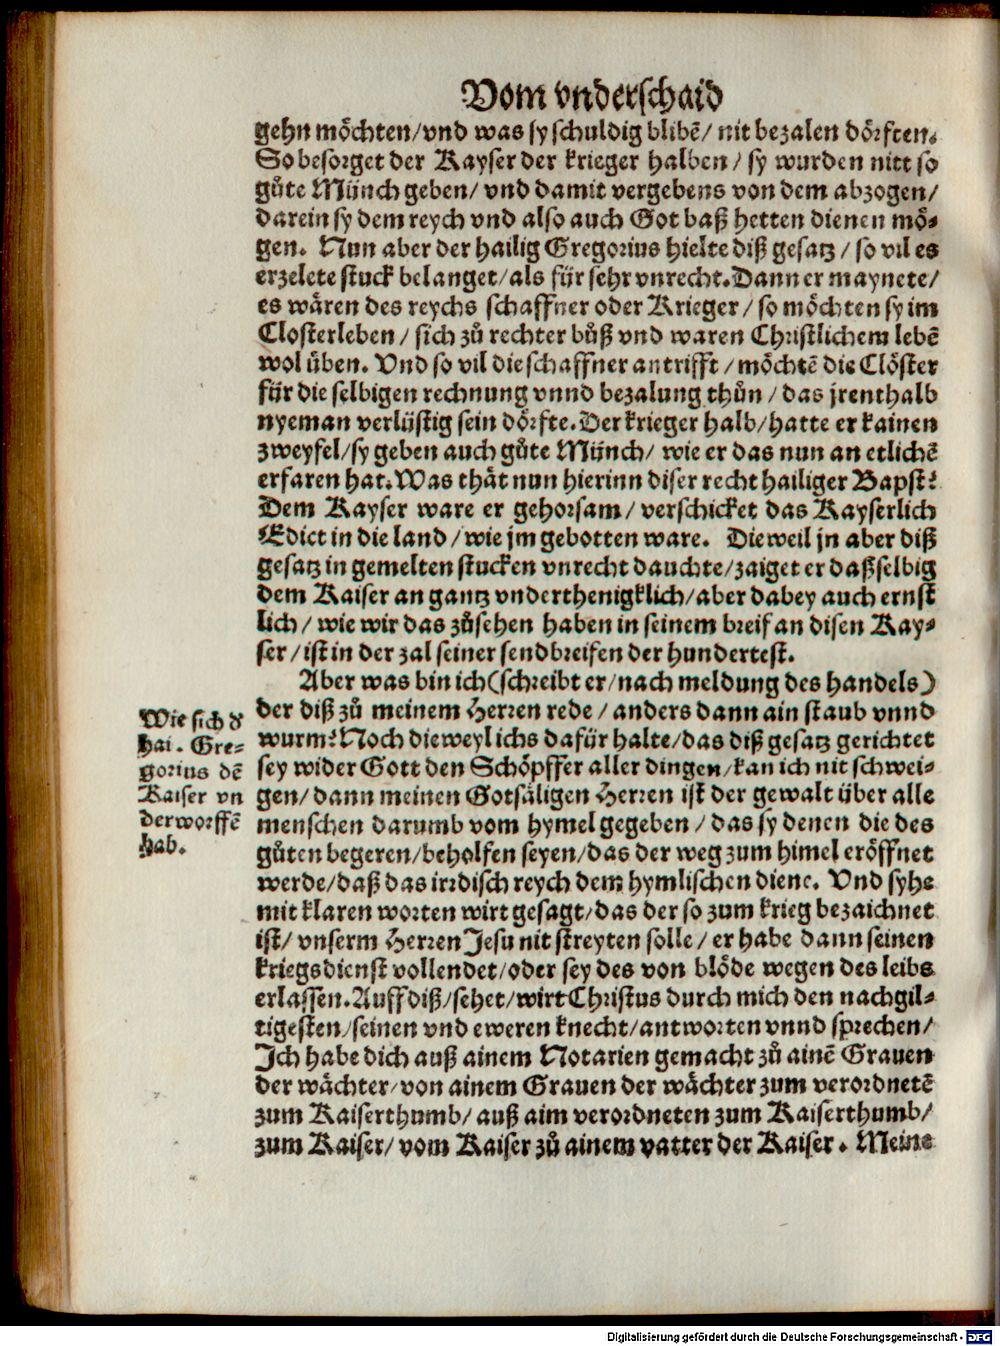 Vom vnderschaid
gehn möchten/vnd was sy schuldig blibē/ nit bezalen dörften.
So besorget der Kayser der krieger halben/ sy wurden nitt so
gůte Münch geben/ vnd damit vergebens von dem abzogen/
darein sy dem reych vnd also auch Got baß hetten dienen mö-
gen. Nun aber der hailig Gregorius hielte diß gesatz/ so vil es
erzelete stuck belanget/als für sehr vnrecht.Dann er maynete/
es wären des reychs schaffner oder Krieger/ so möchten sy im
Closterleben/ sich zů rechter bůß vnd waren Christlichem lebē
wol üben. Vnd so vil die schaffner antrifft/möchtē die Clöster
für die selbigen rechnung vnnd bezalung thůn/das jrenthalb
nyeman verlüstig sein dörfte.Der krieger halb/hatte er kainen
zweyfel/sy geben auch gůte Münch/ wie er das nun an etlichē
erfaren hat.Was thät nun hierinn diser recht hailiger Bapst?
Dem Kayser ware er gehorsam/ verschicket das Kayserlich
Edict in die land/wie jm gebotten ware. Die weil jn aber diß
gesatz in gemelten stucken vnrecht dauchte/zaiget er daßselbig
dem Kaiser an gantz vnderthenigklich/aber dabey auch ernst
lich/ wie wir das zůsehen haben in seinem breif an disen Kay-
ser/ist in der zal seiner sendbreifen der hundertest.
Aber was bin ich(schreibt er/nach meldung des handels)
der diß zů meinem Herren rede/anders dann ain staub vnnd
wurm? Noch dieweyl ichs dafür halte/das diß gesatz gerichtet
sey wider Gott den Schöpffer aller dingen/kan ich nit schwei-
gen/dann meinen Gotsäligen Herren ist der gewalt über alle
menschen darumb vom hymel gegeben/das sy denen die des
gůten begeren/beholfen seyen/das der weg zum himel eröffnet
werde/daß das irrdisch reych dem hymlischen diene. Vnd syhe
mit klaren worten wirt gesagt/das der so zum krieg bezaichnet
ist/ vnserm Herren Jesu nit streyten solle/er habe dann seinen
kriegsdienst vollendet/oder sey des von blöde wegen des leibs
erlassen.Auff diß/sehet/wirt Christus durch mich den nachgil-
tigesten/seinen vnd eweren knecht/antworten vnnd sprechen/
Ich habe dich auß ainem Notarien gemacht zů ainē Grauen
der wächter/von ainem Grauen der wächter zum verordnetē
zum Kaiserthumb/ auß aim verordneten zum Kaiserthumb/
zum Kaiser/ vom Kaiser zů ainem vatter der Kaiser. Meine
Wie sich d
hai. Gre-
gorius dē
Kaiser vn
derworffē
hab.
Digitalisierung gefördert durch die Deutsche Forschungsgemeinschaft - DFG